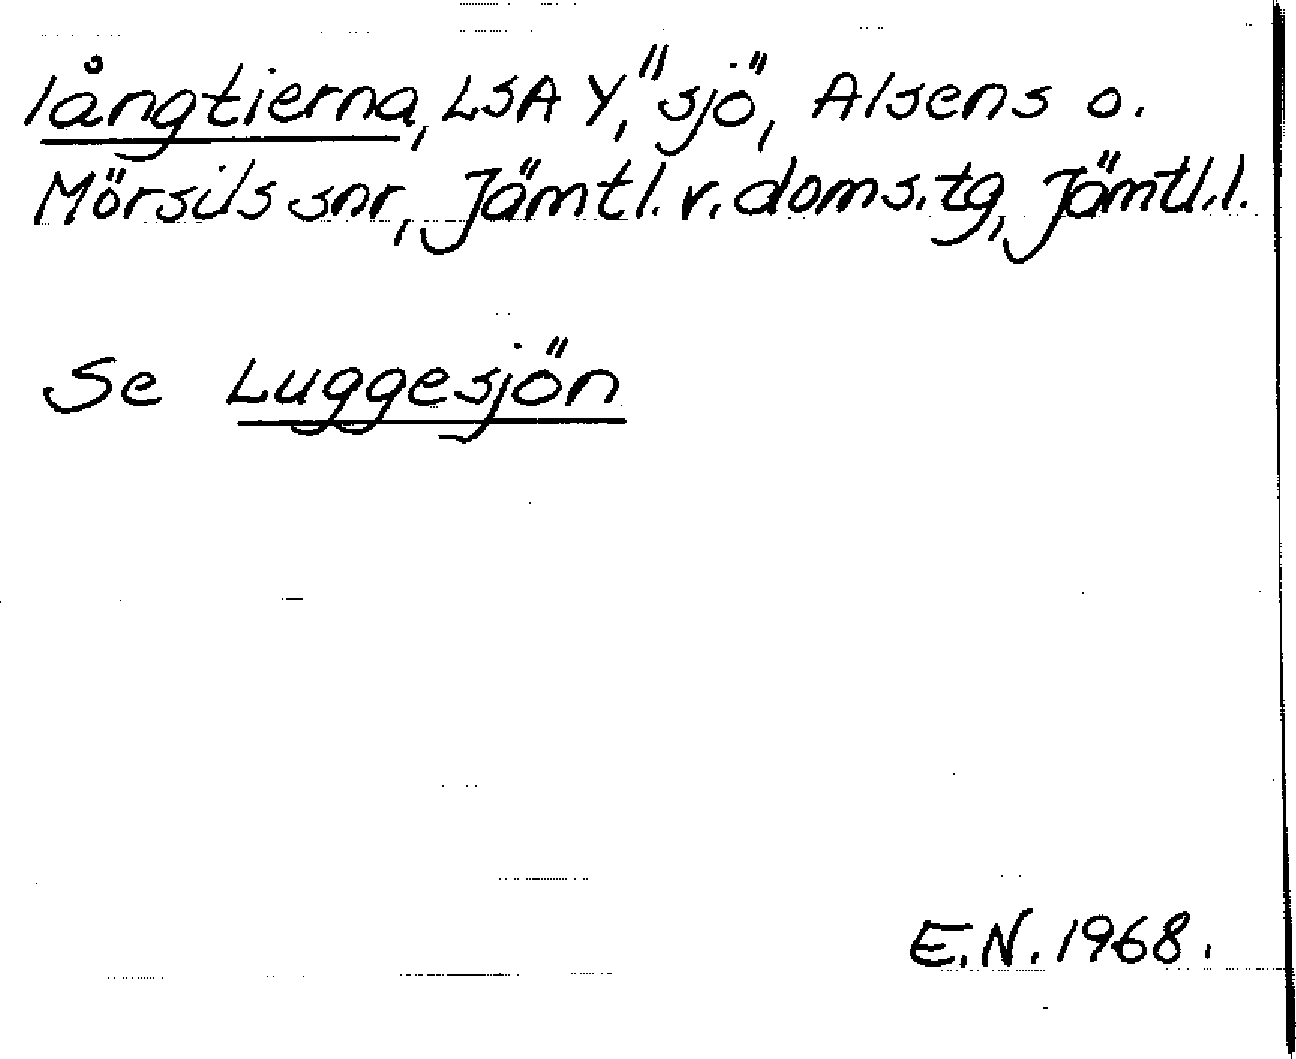 långtierna, LSA Y, "sjö", Alsens o.
Mörsils snr, Jämtl. v. doms.tg, Jämtl.l.
Se Luggesjön
E.N. 1968.